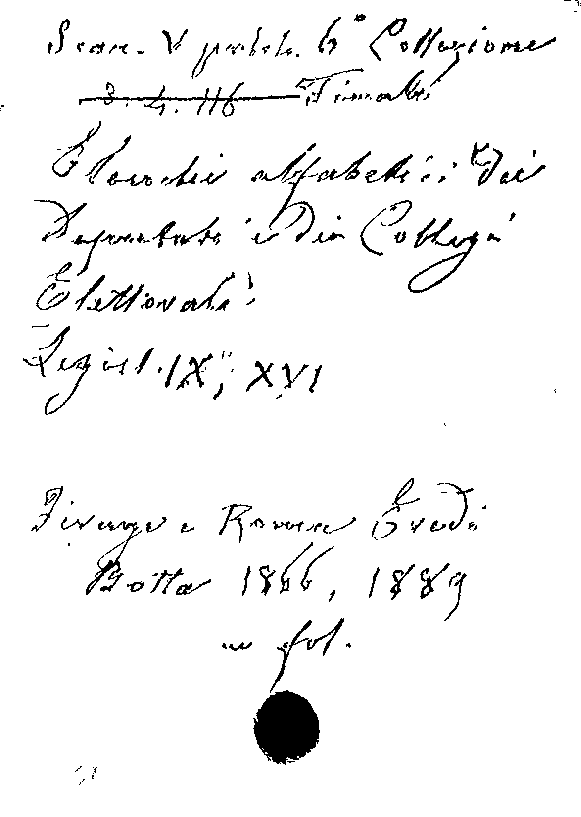 Scan. V palch. 6° Collezione
3. 4. 116 Timate
Elenchi alfabetici dei
Deputati e dei Collegi
Elettorali
Legisl. IX, XVI
Firenze e Roma Eredi
Botta 1866, 1889
in fol.